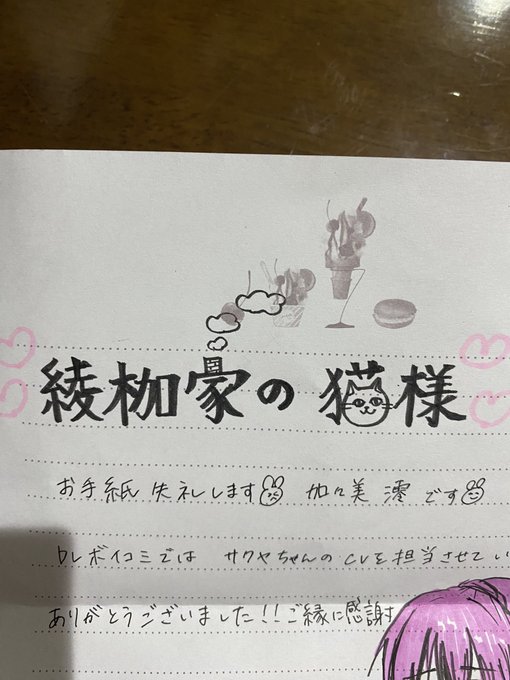 綾枷家の猫様
お手紙失礼します 加々美 澪です
ボイコミでは サクヤちゃんのCVを担当させてい
ありがとうございました!!ご縁に感謝